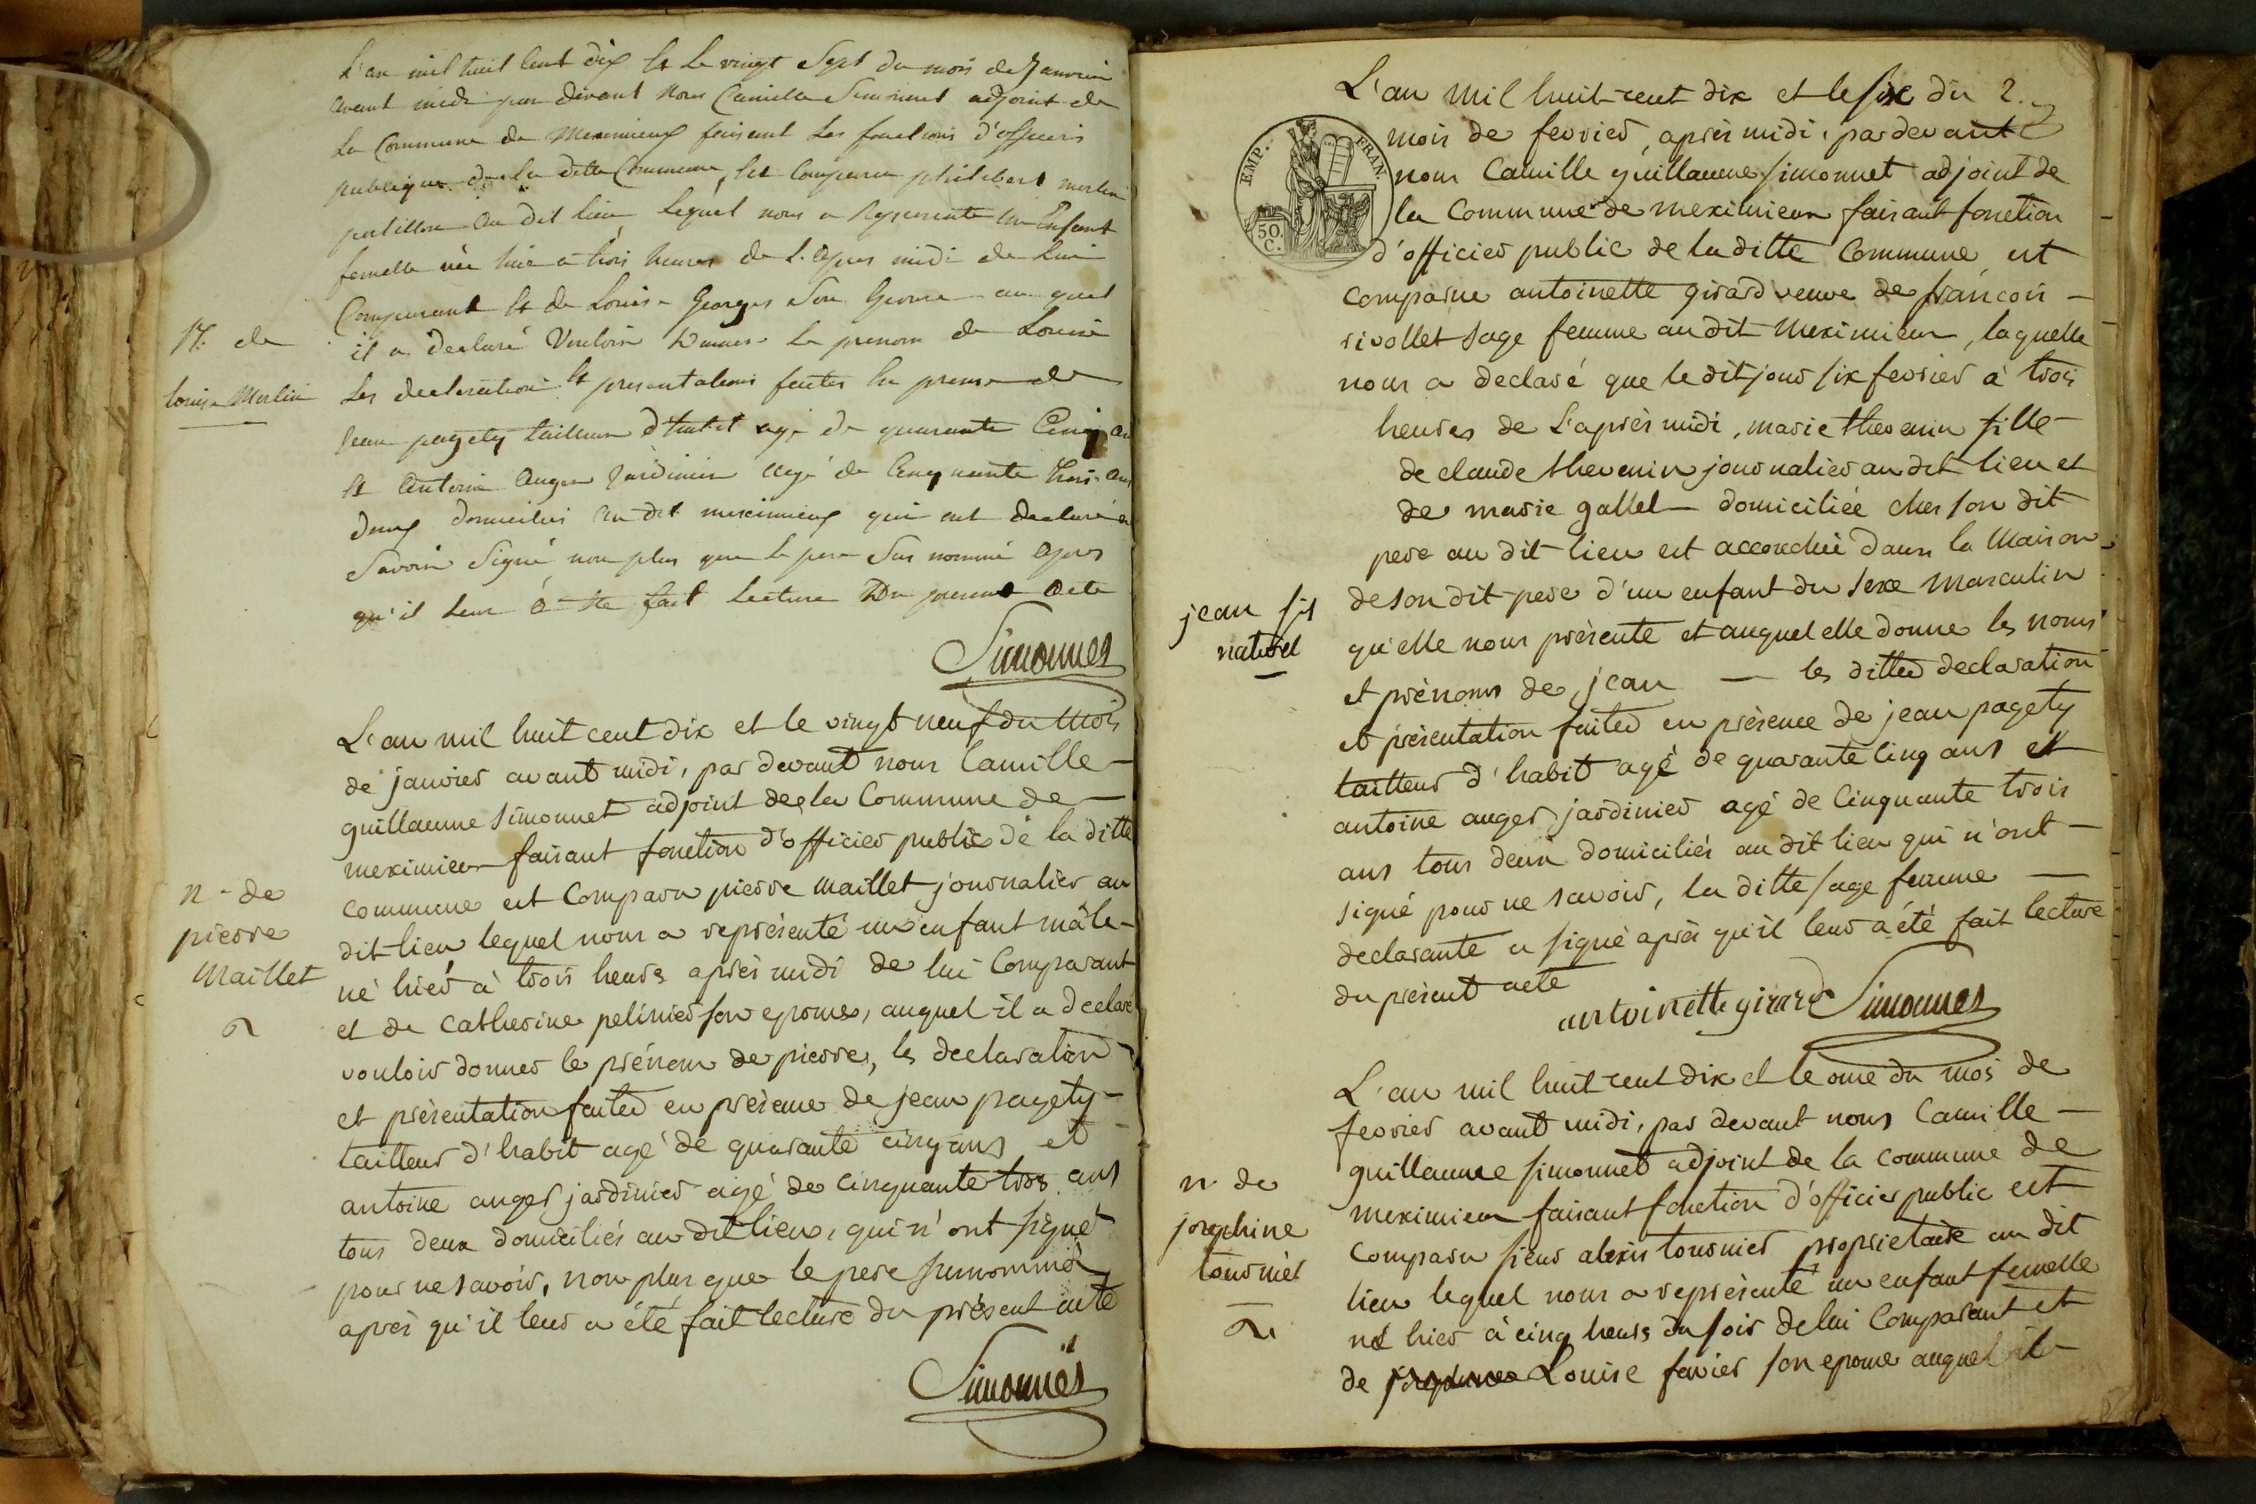 L'an mil huit cent dix et le vingt sept du mois de Janvier
avant midi par devant nous Camille Simonnet adjoint de
La Commune de Meximieux faisant les fonctions d'officiers
publique de la ditte Commune, est Comparu philibert merlin
postillon au dit lieu Lequel nous a représenté un Enfant
femelle née hier à trois heures de L'apres midi de Lui
Comparant et de Louise Georges Son Epouse au quel
il a declaré Vouloir Donner Le prenom de Louise
Les declaration et presentations faites En presence de
Jean pagety tailleur d'habit agé de quarante Cinq an
et Antoine Auger Jardinier agé de Cinquante trois ans
Domiciliés au dit meximieux qui ont declaré
Savoir Signé non plus que le pere Sus nommé apres
qu'il Leur a été fait Lecture Du present acte
Simonnet
N. de
Louise Merlin
L'an mil huit cent dix et le vingt neuf du mois
de janvier avant midi, par devant nous Camille
guillaume simonnet adjoint de la Commune de
meximieu faisant fonction d'officier public de la ditte
commune est Comparu pierre maillet journalier au
dit lieu lequel nous a représenté un enfant mâle
né hier à trois heures après midi de lui Comparant
et de Catherine pelinier son epouse, auquel il a declaré
vouloir donner le prénom de pierre, les declaration
et présentation faites en présence de jean pagety
tailleur d'habit agé de quarante cinq ans et
antoine auger jardinier agé de cinquante trois ans
tous deux domiciliés au dit lieu, qui n'ont signé
pour ne savoir, non plus que le pere surnommé
après qu'il leur a été fait lecture du présent acte
Simonnet
n. de
pierre
Maillet
L'an mil huit cent dix et le six du 2.
mois de fevrier, après midi, par devant
nous Camille guillaume simonnet adjoint de
la Commune de meximieu faisant fonction
d'officier public de la ditte Commune est
comparue antoinette girard veuve de françois
rivollet sage femme au dit Meximieu, laquelle
nous a declaré que le dit jour six fevrier à trois
heures de L'après midi, marie thevenin fille
de claude thevenin journalier au dit lieu et
de marie gallet domiciliée chez son dit
pere au dit lieu est accouchée dans la Maison
de son dit pere d'un enfant du sexe Masculin
qu'elle nous présente et auquel elle donne les noms
et prénoms de jean les dittes declaration
et présentation faites en présence de jean pagety
tailleur d'habit agé de quarante cinq ans et
antoine auger jardinier agé de Cinquante trois
ans tous deux domiciliés au dit lieu qui n'ont
signé pour ne savoir, la ditte sage femme
declarante a signé après qu'il leur a été fait lecture
du présent acte
antoinette girard Simonnet
EMP. FRAN.
50
C.
jean fils
naturel
L'an mil huit cent dix et le onze du mois de
fevrier avant midi, par devant nous Camille
guillaume simonnet adjoint de la commune de
meximieu faisant fonction d'officier public est
comparu sieur alexis tournier proprietaire au dit
lieu lequel nous a représenté un enfant femelle
né hier à cinq heures du soir de lui Comparant et
de Louise favier son epouse auquel il a
n. de
josephine
tournier